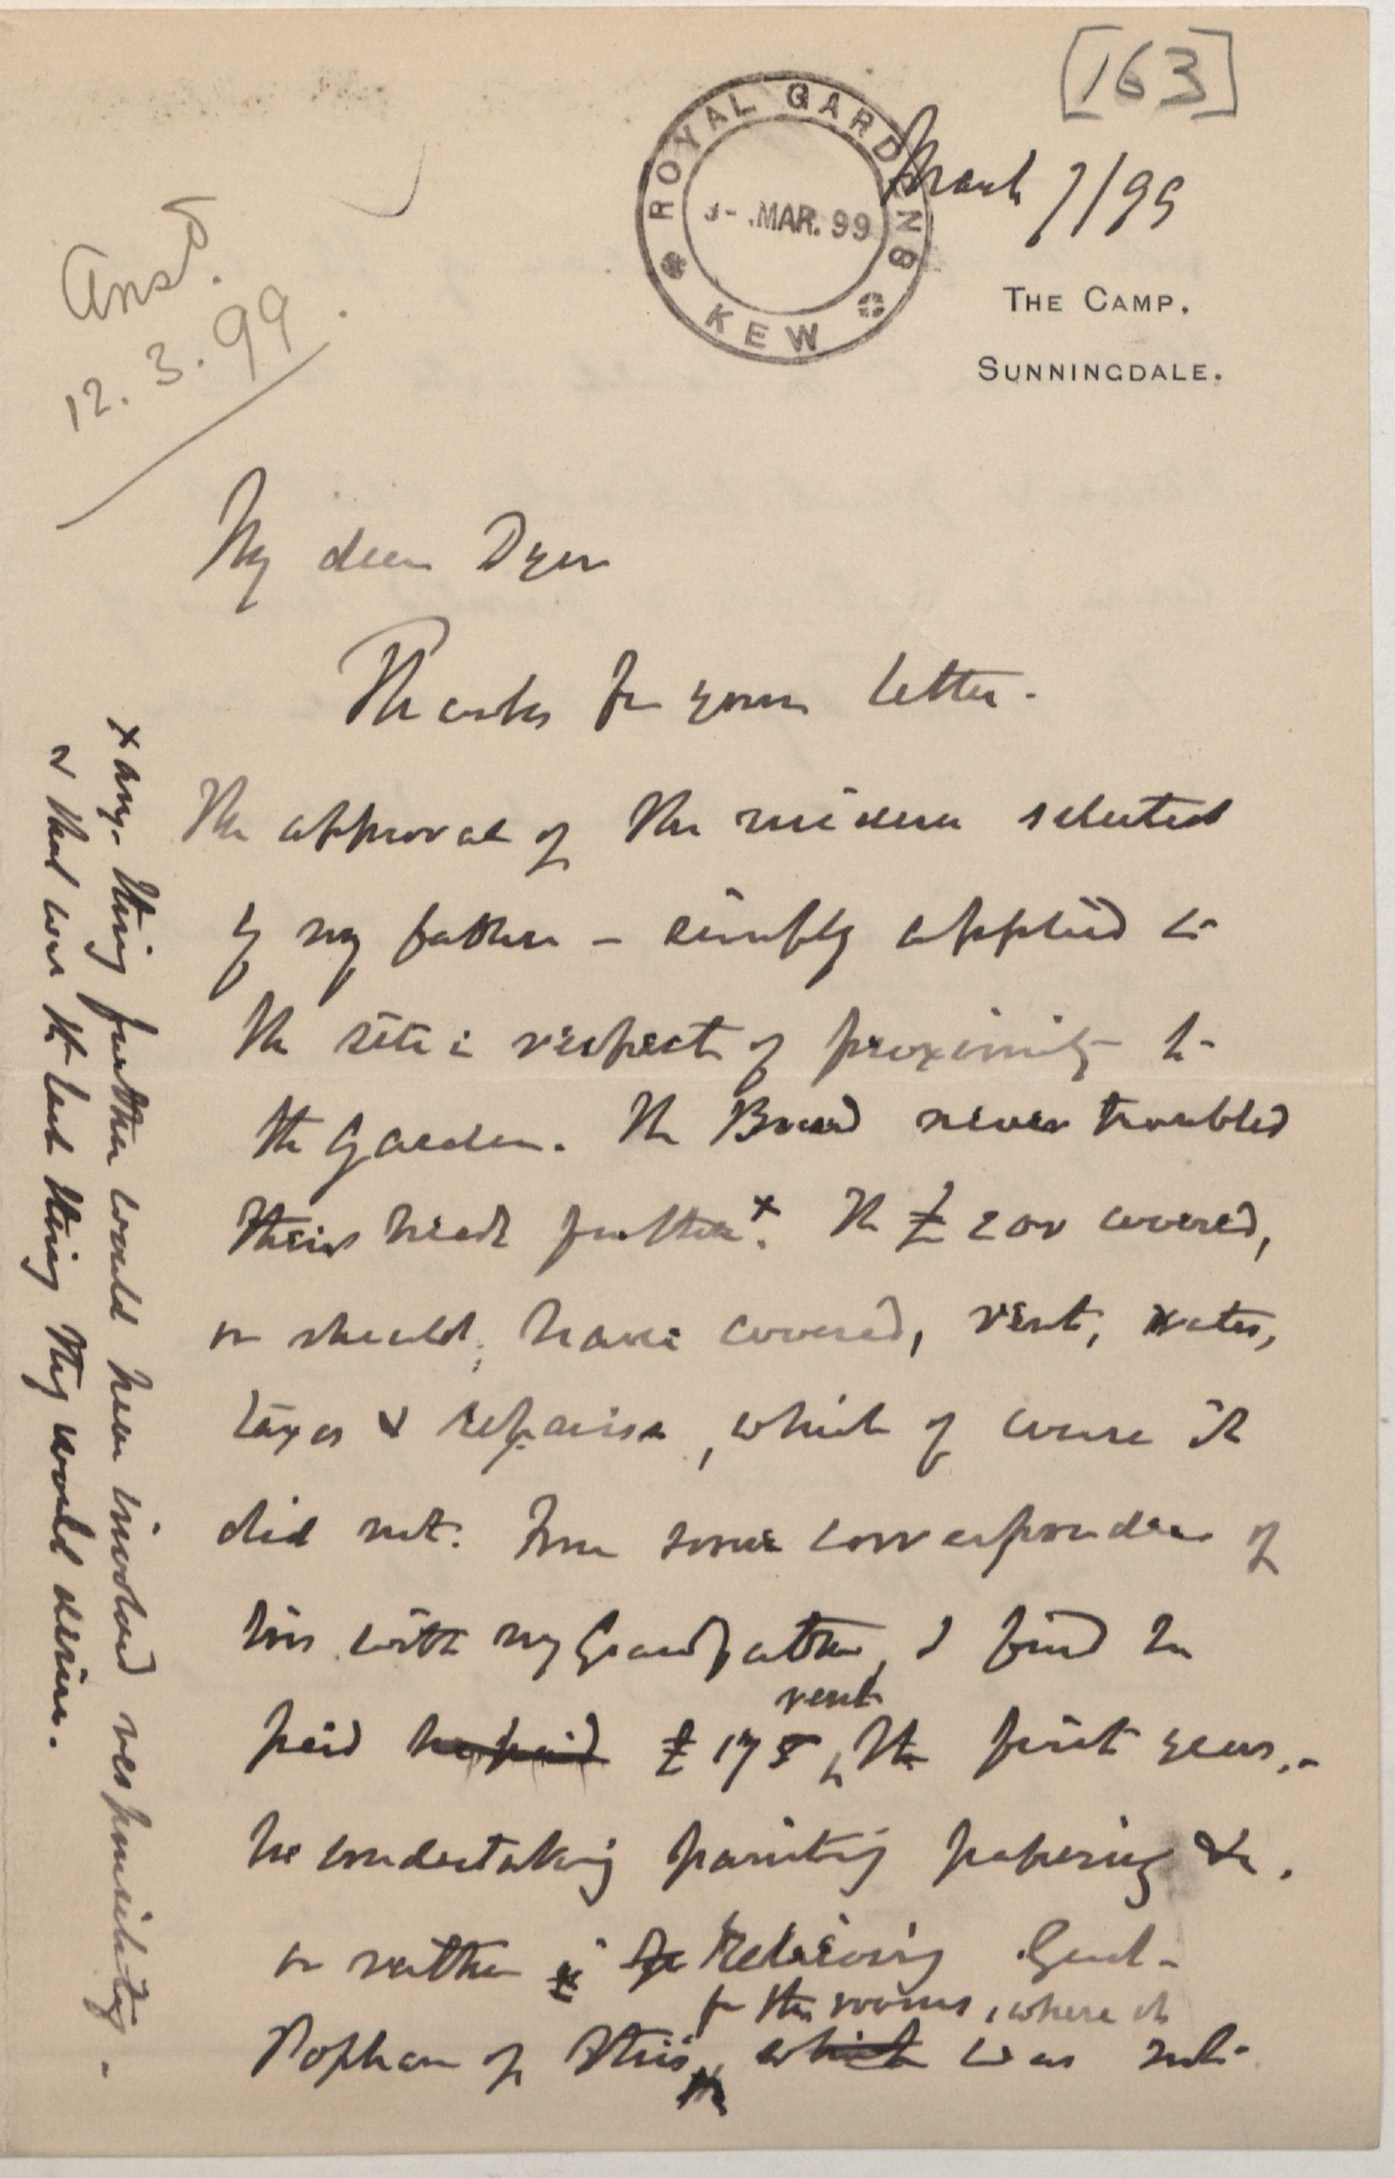 [163]
ROYAL GARDENS
KEW
MAR. 99
March 7/99
THE CAMP.
SUNNINGDALE.
Ansd.
12.3.99.
My dear Dyer
Thanks for your letter.
The approval of the residence selected
by my father – simply applied to
the site in respect of proximity to
the Garden. The Board never troubled
their heads further x. The £200 covered,
or should, have covered, rent, rates,
taxes & repairs, which of course it
did not. From some correspondence of
his with my Grandfather, I find he
paid he paid £175 rent the first years,-
he undertaking painting papering &c.
or rather in relieving Genl-
Popham of this for the rooms, where it which was not
x any-thing further would have involved responsibility -
& that was the last thing they would desire.